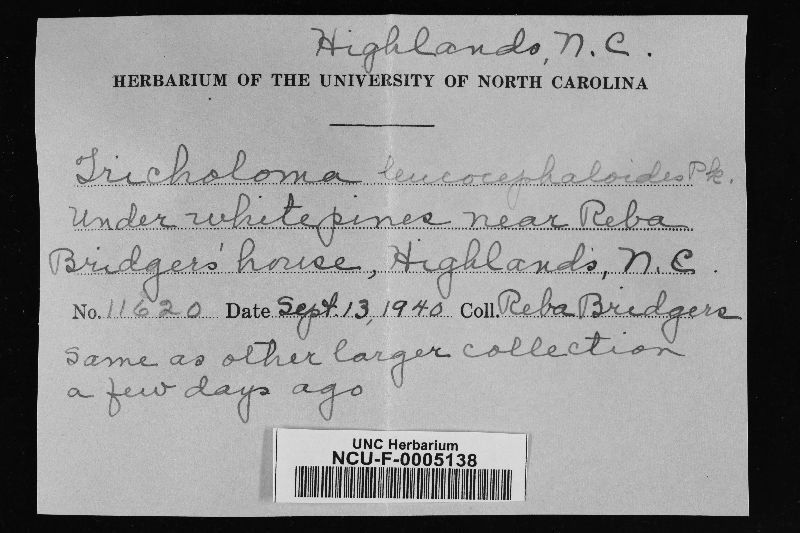 Highlands, N.C.
HERBARIUM OF THE UNIVERSITY OF NORTH CAROLINA
Tricholoma leucocephaloides Pk.
Under white pines near Reba
Bridgers' house, Highlands, N.C.
No. 11620 Date Sept. 13, 1940 Coll. Reba Bridgers
Same as other larger collection
a few days ago
UNC Herbarium
NCU-F-0005138